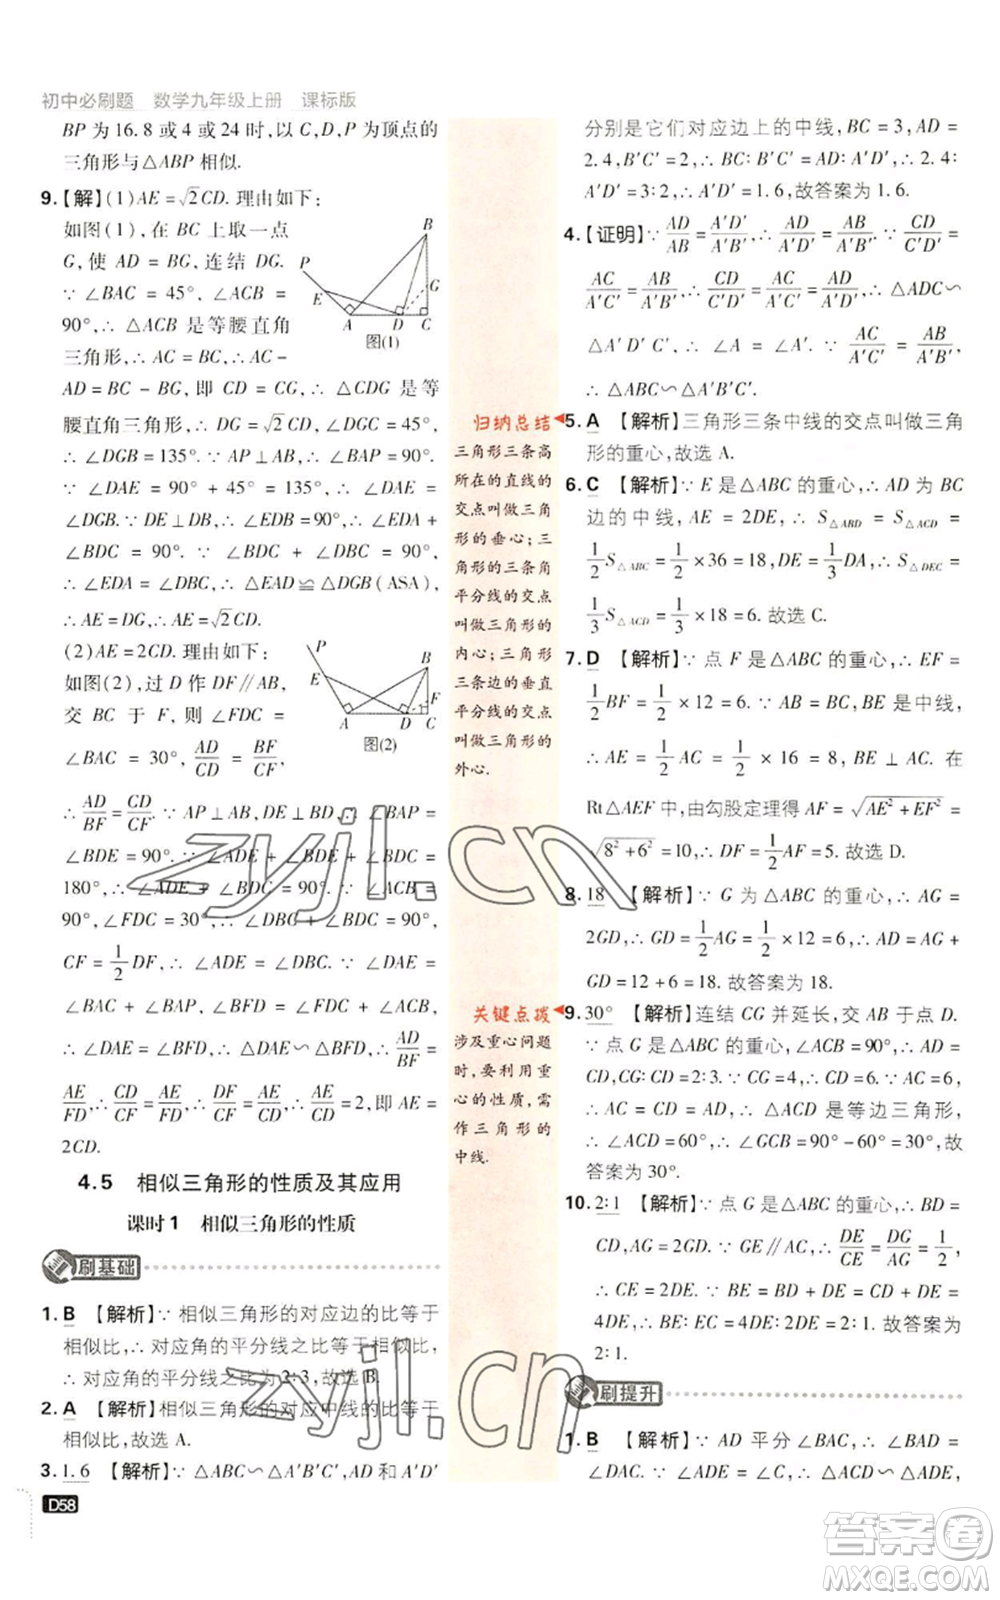 初中必刷题 数学九年级上册 课标版
BP 为 16.8 或 4 或 24 时,以 C,D,P 为顶点的
三角形与△ABP 相似.
9.【解】(1)AE=√2CD. 理由如下:
如图(1),在 BC 上取一点
G,使 AD=BD,连结 DG.
∵ ∠BAC=45°,∠ACB=
90°,∴ △ACB 是等腰直角
三角形,∴ AC=BC,∴ AC-
AD=BC-BG,即 CD=CG,∴ △CDG 是等
腰直角三角形,∴ DG=√2CD,∠DGC=45°,
∴ ∠DGB=135°. ∵ AP⊥AB,∴ ∠BAP=90°,
∴ ∠DAE=90°+45°=135°,∴ ∠DAE=
∠DGB. ∵ DE⊥DB,∴ ∠EDB=90°,∴ ∠EDA+
∠BDC=90°. ∵ ∠DBG+∠BDC=90°,
∴ ∠EDA=∠DBG,∴ △EAD≌△DGB(ASA),
∴ AE=DG,∴ AE=√2CD.
P B E G A D C
图(1)
(2)AE=2CD. 理由如下:
如图(2),过 D 作 DF∥AB,
交 BC 于 F,则 ∠FDC=
∠BAC=30°,AD/CD=BF/CF,
P B E F A D C
图(2)
∴ AD/BF=CD/CF. ∵ AP⊥AB,DE⊥BD,∴ ∠BAP=
∠BDE=90°. ∵ ∠ADE+∠BDE+∠BDC=
180°,∴ ∠ADE+∠BDC=90°. ∵ ∠ACB=
90°,∠FDC=30°,∴ ∠DBC+∠BDC=90°,
CF=1/2DF,∴ ∠ADE=∠DBC. ∵ ∠DAE=
∠BAC+∠BAP,∠BFD=∠FDC+∠ACB,
∴ ∠DAE=∠BFD,∴ △ADE∽△FBD,∴ AD/BF=
AE/FD,∴ AE/FD=CD/CF,∴ AE/CD=DF/CF,∴ AE/CD=DF/CF=2,即 AE=
2CD.
4.5 相似三角形的性质及其应用
课时 1 相似三角形的性质
刷基础
1. B 【解析】∵ 相似三角形的对应边的比等于
相似比,∴ 对应角的平分线之比等于相似比,
∴ 对应角的平分线之比为 2∶3,故选 B.
2. A 【解析】∵ 相似三角形的对应中线的比等于
相似比,故选 A.
3. 1.6 【解析】∵ △ABC∽△A′B′C′,AD 和 A′D′
D58
归纳总结
三角形三条高
所在的直线的
交点叫做三角
形的垂心;三
角形的三条角
平分线的交点
叫做三角形的
内心;三角形
三条边的垂直
平分线的交点
叫做三角形的
外心.
关键点拨
涉及重心问题
时,要利用重
心的性质,需
作三角形的
中线.
分别是它们对应边上的中线,BC=3,AD=
2.4,B′C′=2,∴ AD∶A′D′=BC∶B′C′,∴ 2.4∶
A′D′=3∶2,∴ A′D′=1.6,故答案为 1.6.
4.【证明】∵ AD/AB=A′D′/A′B′,∴ AD/A′D′=AB/A′B′. ∵ CD/C′D′=
AC/A′C′=AB/A′B′,∴ CD/C′D′=AC/A′C′=AD/A′D′,∴ △ADC∽
△A′D′C′,∴ ∠A=∠A′. ∵ AC/A′C′=AB/A′B′,
∴ △ABC∽△A′B′C′.
5. A 【解析】三角形三条中线的交点叫做三角
形的重心,故选 A.
6. C 【解析】∵ E 是△ABC 的重心,∴ AD 为 BC
边的中线,AE=2DE,∴ S△ABD=S△ACD=
1/2S△ABC=1/2×36=18,DE=1/3DA,∴ S△DEC=
1/3S△ACD=1/3×18=6. 故选 C.
7. D 【解析】∵ 点 F 是△ABC 的重心,∴ EF=
1/2BF=1/2×12=6. ∵ AB=BC,BE 是中线,
∴ AE=1/2AC=1/2×16=8,BE⊥AC. 在
Rt△AEF 中,由勾股定理得 AF=√(AE²+EF²)=
√(8²+6²)=10,∴ DF=1/2AF=5. 故选 D.
8. 18 【解析】∵ G 为△ABC 的重心,∴ AG=
2GD,∴ GD=1/2AG=1/2×12=6,∴ AD=AG+
GD=12+6=18. 故答案为 18.
9. 30° 【解析】连结 CG 并延长,交 AB 于点 D.
∵ 点 G 是△ABC 的重心,∠ACB=90°,∴ AD=
CD=1/2AB=1/2×12=6. ∵ AC=6,
∴ AC=CD=AD,∴ △ACD 是等边三角形,
∴ ∠ACD=60°,∴ ∠GCB=90°-60°=30°,故
答案为 30°.
10. 2∶1 【解析】∵ 点 G 是△ABC 的重心,∴ BD=
CD,AG=2GD. ∵ GE∥AC,∴ DE/CE=DG/AG=1/2,
∴ CE=2DE,∴ CD=DE+CE=3DE,∴ BE=
4DE,∴ BE∶CE=4DE∶2DE=2∶1. 故答案为
2∶1.
刷提升
1. B 【解析】∵ AD 平分∠BAC,∴ ∠BAD=
∠DAC. ∵ ∠AEC=∠ADB,∴ ∠CED=
zyjl.cn
zyjl.cn
答案圈
MXQE.COM